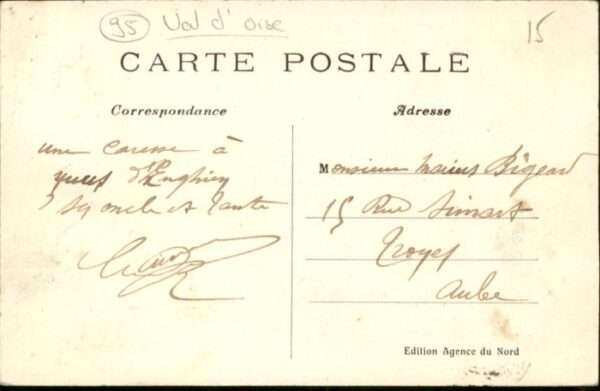 95 Val d'oise
15
CARTE POSTALE
Correspondance
Adresse
une caresse à
d'Enghien
oncle et tante
Monsieur Bigeard
15 Rue Simart
Troyes
Aube
Edition Agence du Nord